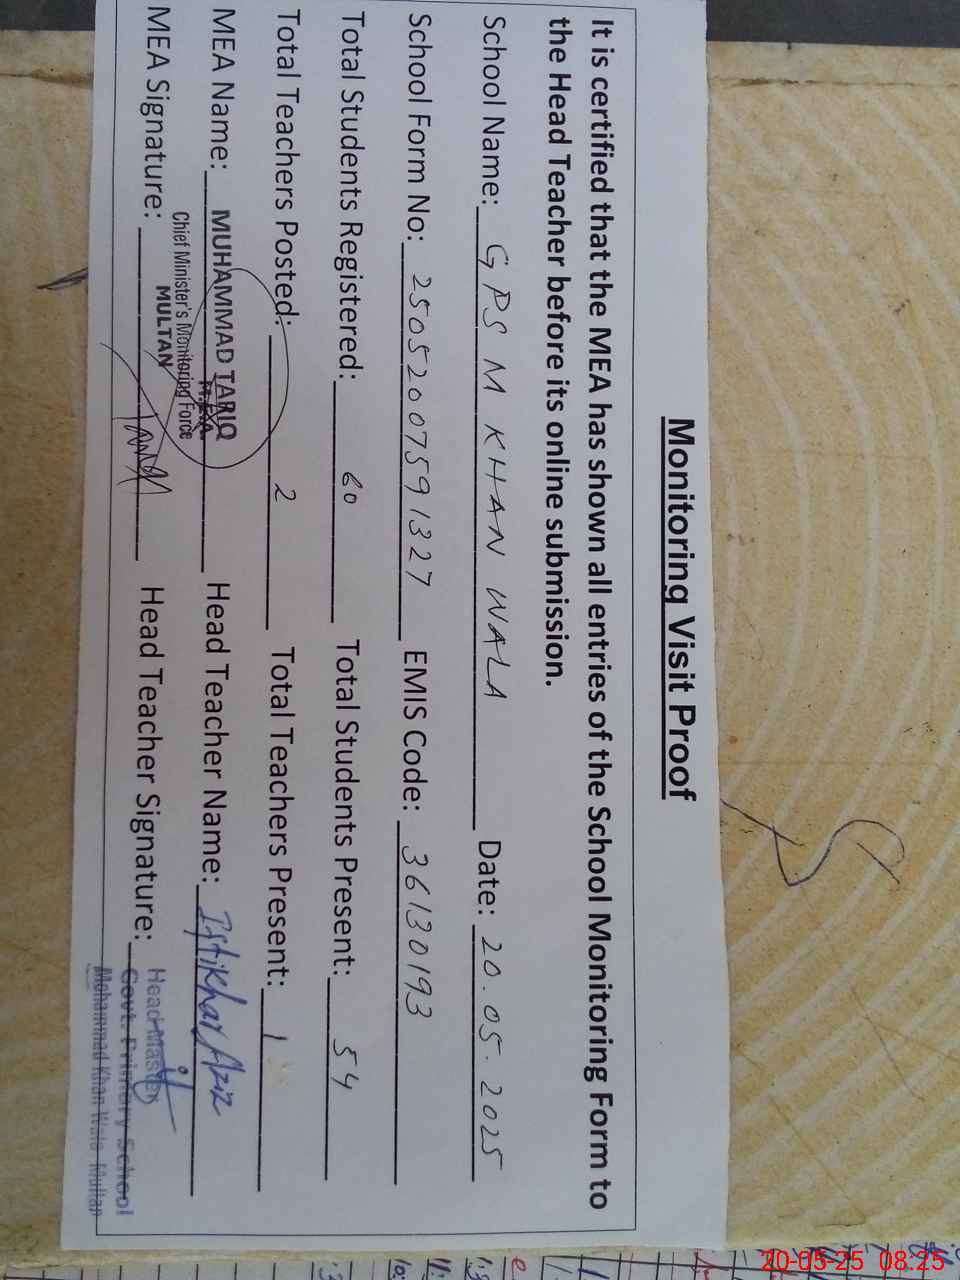 Monitoring Visit Proof
It is certified that the MEA has shown all entries of the School Monitoring Form to
the Head Teacher before its online submission.
School Name: GPS M KHAN WALA Date: 20.05.2025
School Form No: 2505200759 1327 EMIS Code: 36130193
Total Students Registered: 60 Total Students Present: 54
Total Teachers Posted: 2 Total Teachers Present: 1
MEA Name: MUHAMMAD TARIQ Head Teacher Name: Iftikhar Aziz
M.E.A.
Chief Minister's Monitoring Force
MULTAN
MEA Signature: Tariq Head Teacher Signature:
Head Master
Govt. Primary School
Mohammad Khan Wala Multan
20-05-25 08:25